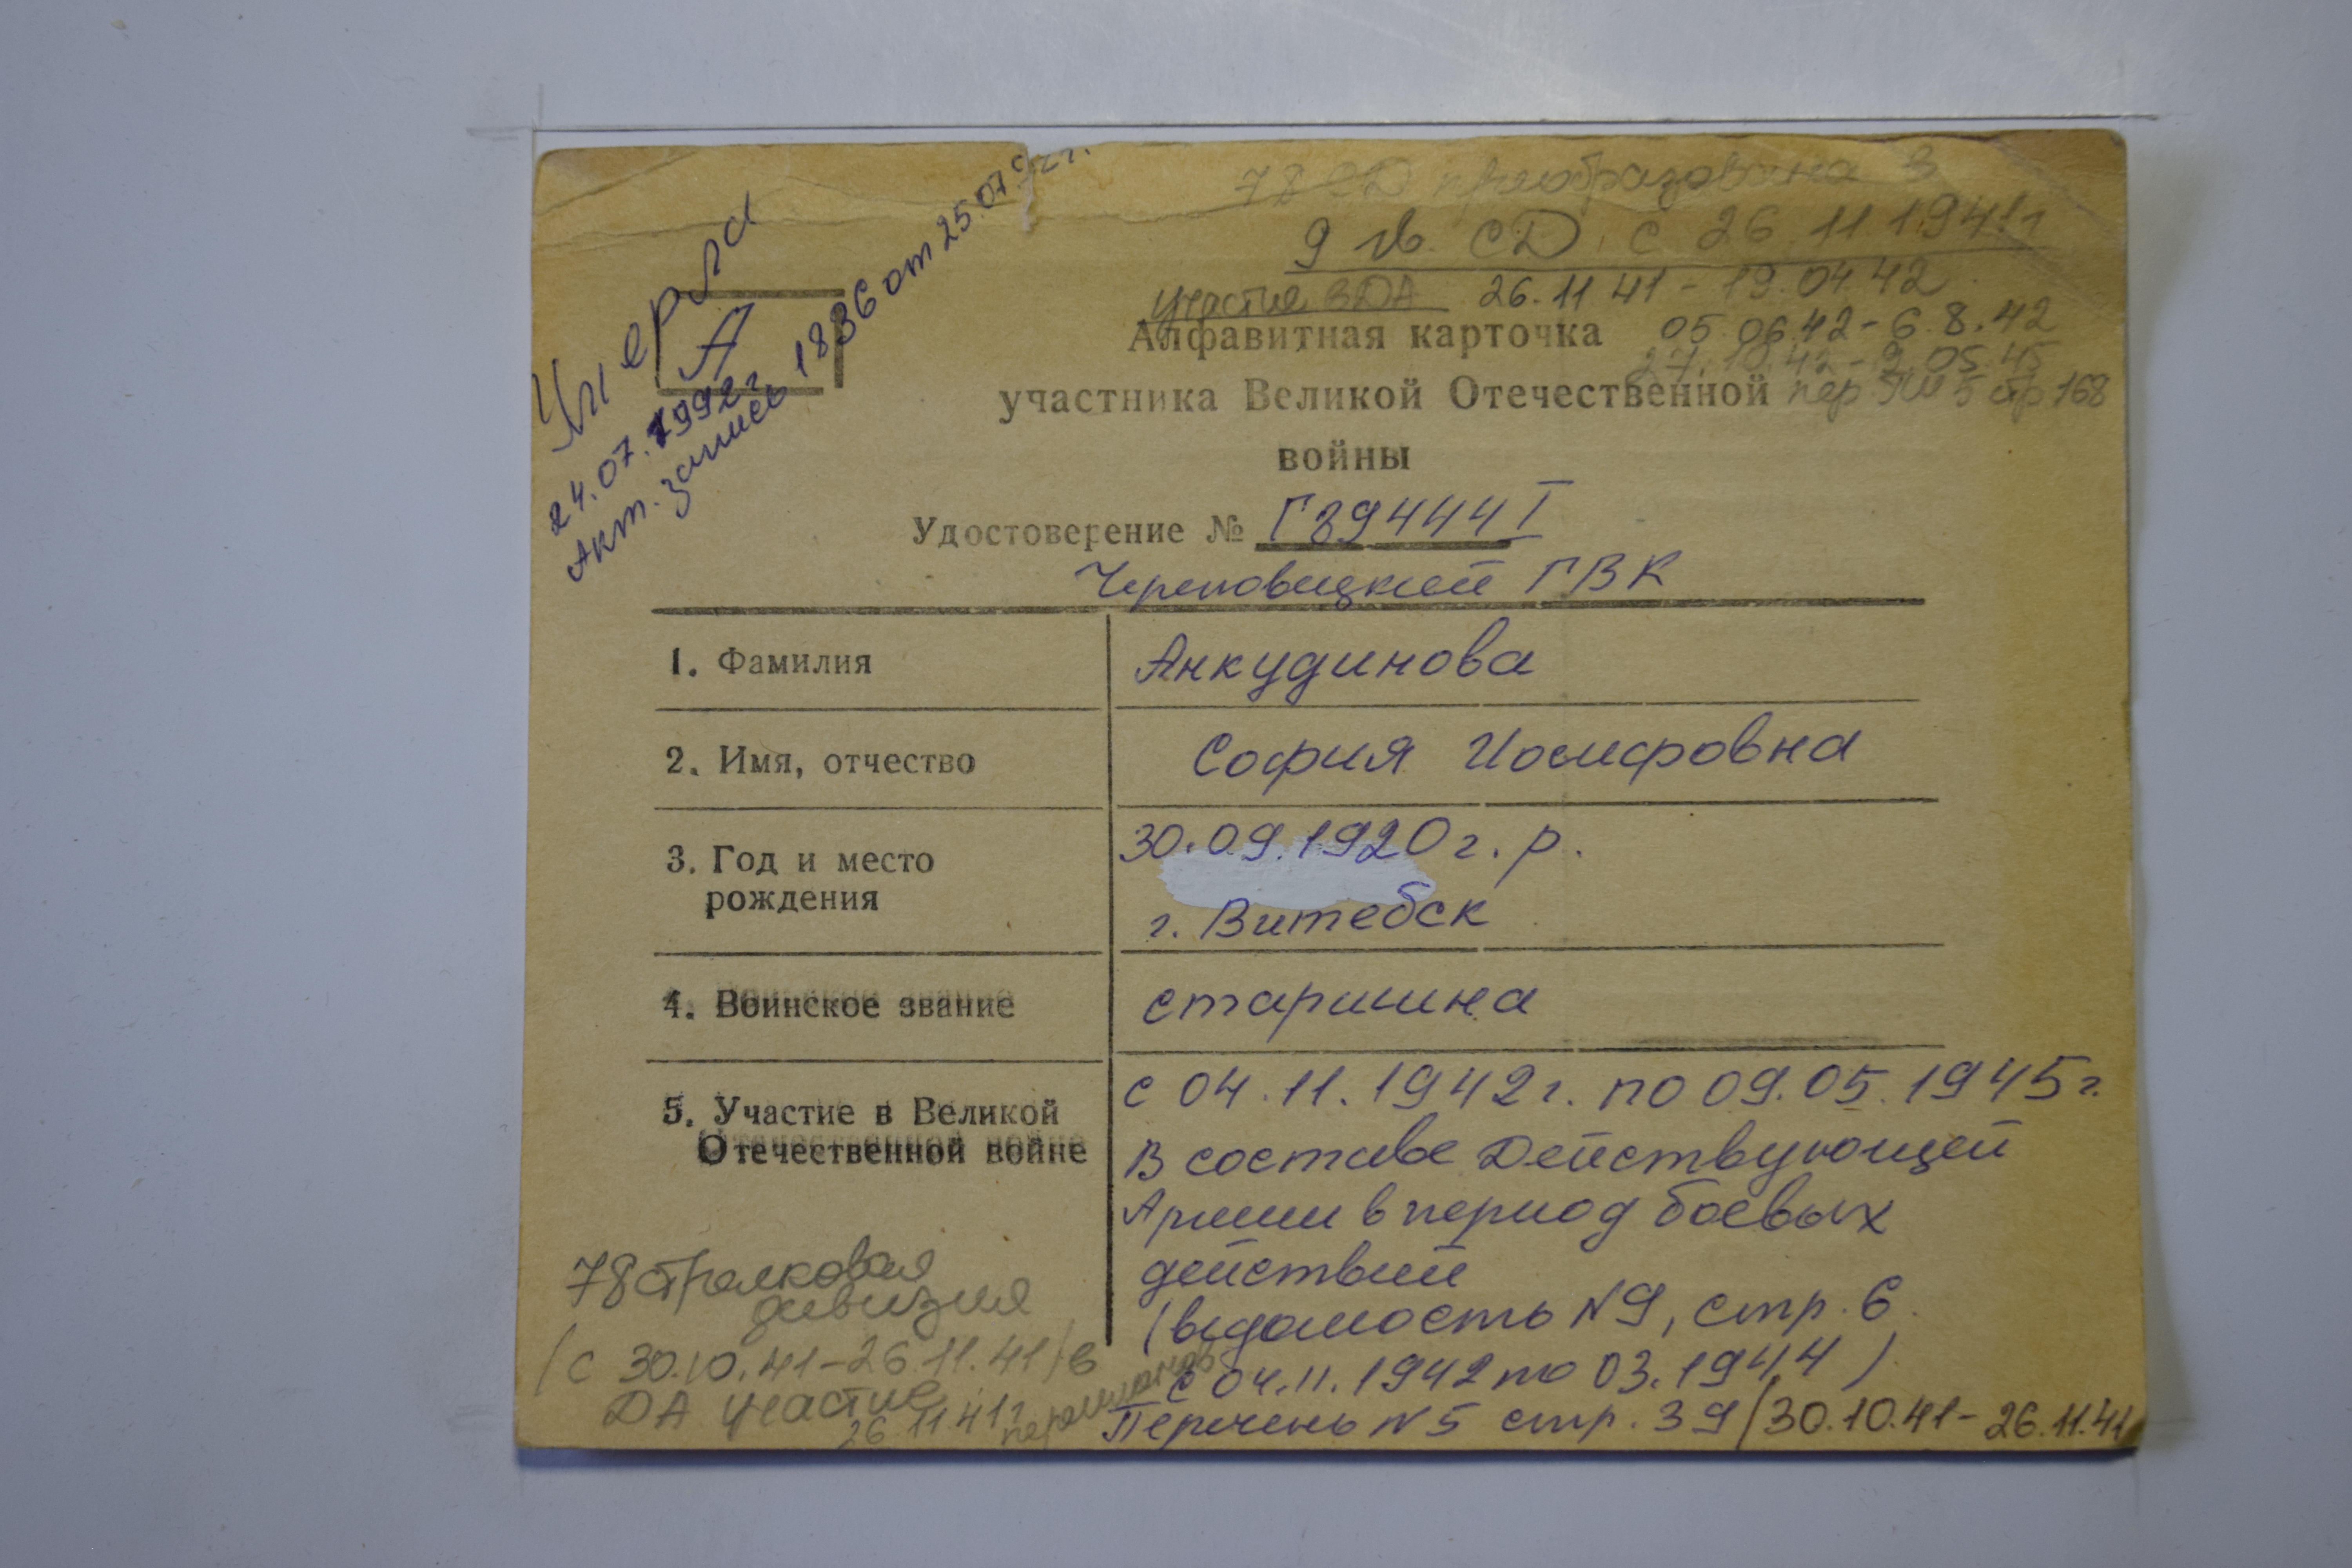 78 СД преобразована в
9 гв. СД. с 26.11.1941г
участие в ДА 26.11.41 - 19.04.42
05.06.42 - 6.8.42
27.10.42 - 9.05.45
пер ГШ 5 стр 168
Умерла
24.07.1992г.
Акт. запись 1886 от 25.07.92г.
А
Алфавитная карточка
участника Великой Отечественной
войны
Удостоверение № Г 894441
Череповецкий ГВК
1. Фамилия
Анкудинова
2. Имя, отчество
София Иосифовна
3. Год и место
рождения
30.09.1920г.р.
г. Витебск
4. Воинское звание
старшина
5. Участие в Великой
Отечественной войне
с 04.11.1942г. по 09.05.1945г.
В составе Действующей
Армии в период боевых
действий
(ведомость №9, стр. 6
с 04.11.1942 по 03.1944)
Перечень №5 стр. 39 (30.10.41 - 26.11.41
78 стрелковая
дивизия
(с 30.10.41 - 26.11.41) в
ДА участие
26.11.41г